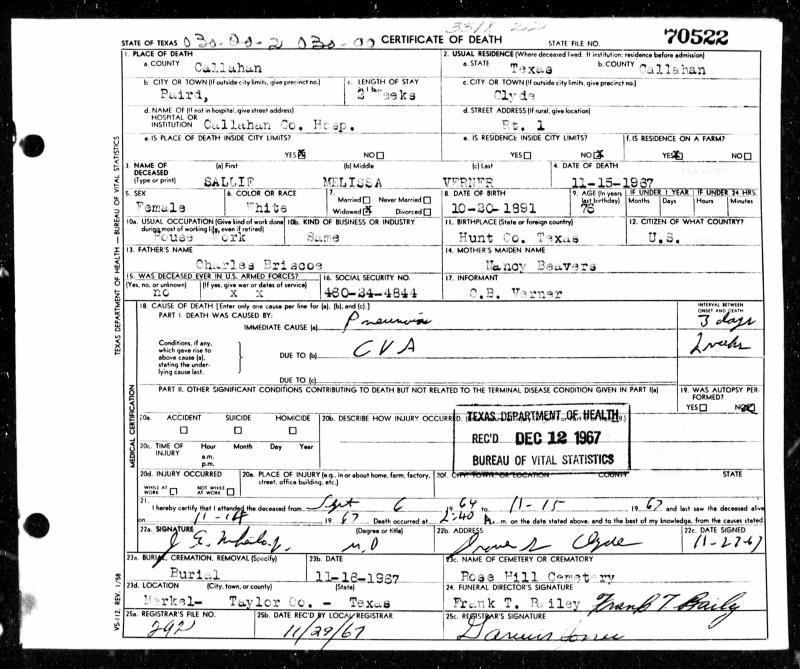 33IX 22
STATE OF TEXAS 030-00-2 030-00 CERTIFICATE OF DEATH STATE FILE NO. 70522
1. PLACE OF DEATH
a. COUNTY
Callahan
2. USUAL RESIDENCE (Where deceased lived. If institution: residence before admission)
a. STATE Texas b. COUNTY Callahan
b. CITY OR TOWN (If outside city limits, give precinct no.)
Baird,
c. LENGTH OF STAY
in 1 b.
2 Weeks
c. CITY OR TOWN (If outside city limits, give precinct no.)
Clyde
d. NAME OF (If not in hospital, give street address)
HOSPITAL OR
INSTITUTION Callahan Co. Hosp.
d. STREET ADDRESS (If rural, give location)
Rt. 1
e. IS PLACE OF DEATH INSIDE CITY LIMITS?
YES X NO
e. IS RESIDENCE INSIDE CITY LIMITS?
YES NO X
f. IS RESIDENCE ON A FARM?
YES X NO
3. NAME OF
DECEASED
(Type or print)
(a) First (b) Middle (c) Last
SALLIE MELISSA VERNER
4. DATE OF DEATH
11-15-1967
5. SEX
Female
6. COLOR OR RACE
White
7.
Married Never Married
Widowed X Divorced
8. DATE OF BIRTH
10-30-1891
9. AGE (In years
last birthday)
76
IF UNDER 1 YEAR
Months Days
IF UNDER 24 HRS.
Hours Minutes
10a. USUAL OCCUPATION (Give kind of work done
during most of working life, even if retired)
House Work
10b. KIND OF BUSINESS OR INDUSTRY
Same
11. BIRTHPLACE (State or foreign country)
Hunt Co. Texas
12. CITIZEN OF WHAT COUNTRY?
U.S.
13. FATHER'S NAME
Charles Briscoe
14. MOTHER'S MAIDEN NAME
Nancy Beavers
15. WAS DECEASED EVER IN U.S. ARMED FORCES?
(Yes, no, or unknown) (If yes, give war or dates of service)
no x x
16. SOCIAL SECURITY NO.
460-24-4844
17. INFORMANT
C.B. Verner
18. CAUSE OF DEATH [Enter only one cause per line for (a), (b), and (c).]
PART I. DEATH WAS CAUSED BY:
IMMEDIATE CAUSE (a) Pneumonia
INTERVAL BETWEEN
ONSET AND DEATH
3 days
Conditions, if any,
which gave rise to
above cause (a),
stating the under-
lying cause last.
DUE TO (b) CVA
2 weeks
DUE TO (c)
PART II. OTHER SIGNIFICANT CONDITIONS CONTRIBUTING TO DEATH BUT NOT RELATED TO THE TERMINAL DISEASE CONDITION GIVEN IN PART I(a)
19. WAS AUTOPSY PER-
FORMED?
YES NO
20a. ACCIDENT SUICIDE HOMICIDE
20b. DESCRIBE HOW INJURY OCCURRED.
TEXAS DEPARTMENT OF HEALTH
REC'D DEC 12 1967
BUREAU OF VITAL STATISTICS
20c. TIME OF
INJURY
Hour Month Day Year
a.m.
p.m.
20d. INJURY OCCURRED
WHILE AT
WORK
NOT WHILE
AT WORK
20e. PLACE OF INJURY (e.g., in or about home, farm, factory,
street, office building, etc.)
20f. CITY, TOWN, OR LOCATION COUNTY STATE
21.
I hereby certify that I attended the deceased from Sept 6 1964 to 11-15 1967 and last saw the deceased alive
on 11-14 1967 Death occurred at 2:40 A.m. on the date stated above, and to the best of my knowledge, from the causes stated.
22a. SIGNATURE (Degree or title)
M.D
22b. ADDRESS
Clyde
22c. DATE SIGNED
11-27-67
23a. BURIAL, CREMATION, REMOVAL (Specify)
Burial
23b. DATE
11-16-1967
23c. NAME OF CEMETERY OR CREMATORY
Rose Hill Cemetery
23d. LOCATION (City, town, or county) (State)
Merkel- Taylor Co. - Texas
24. FUNERAL DIRECTOR'S SIGNATURE
Frank T. Bailey Frank T. Baily
25a. REGISTRAR'S FILE NO.
292
25b. DATE REC'D BY LOCAL REGISTRAR
11/29/67
25c. REGISTRAR'S SIGNATURE
Darcus Jones
TEXAS DEPARTMENT OF HEALTH — BUREAU OF VITAL STATISTICS
MEDICAL CERTIFICATION
VS-112 REV. 1/58